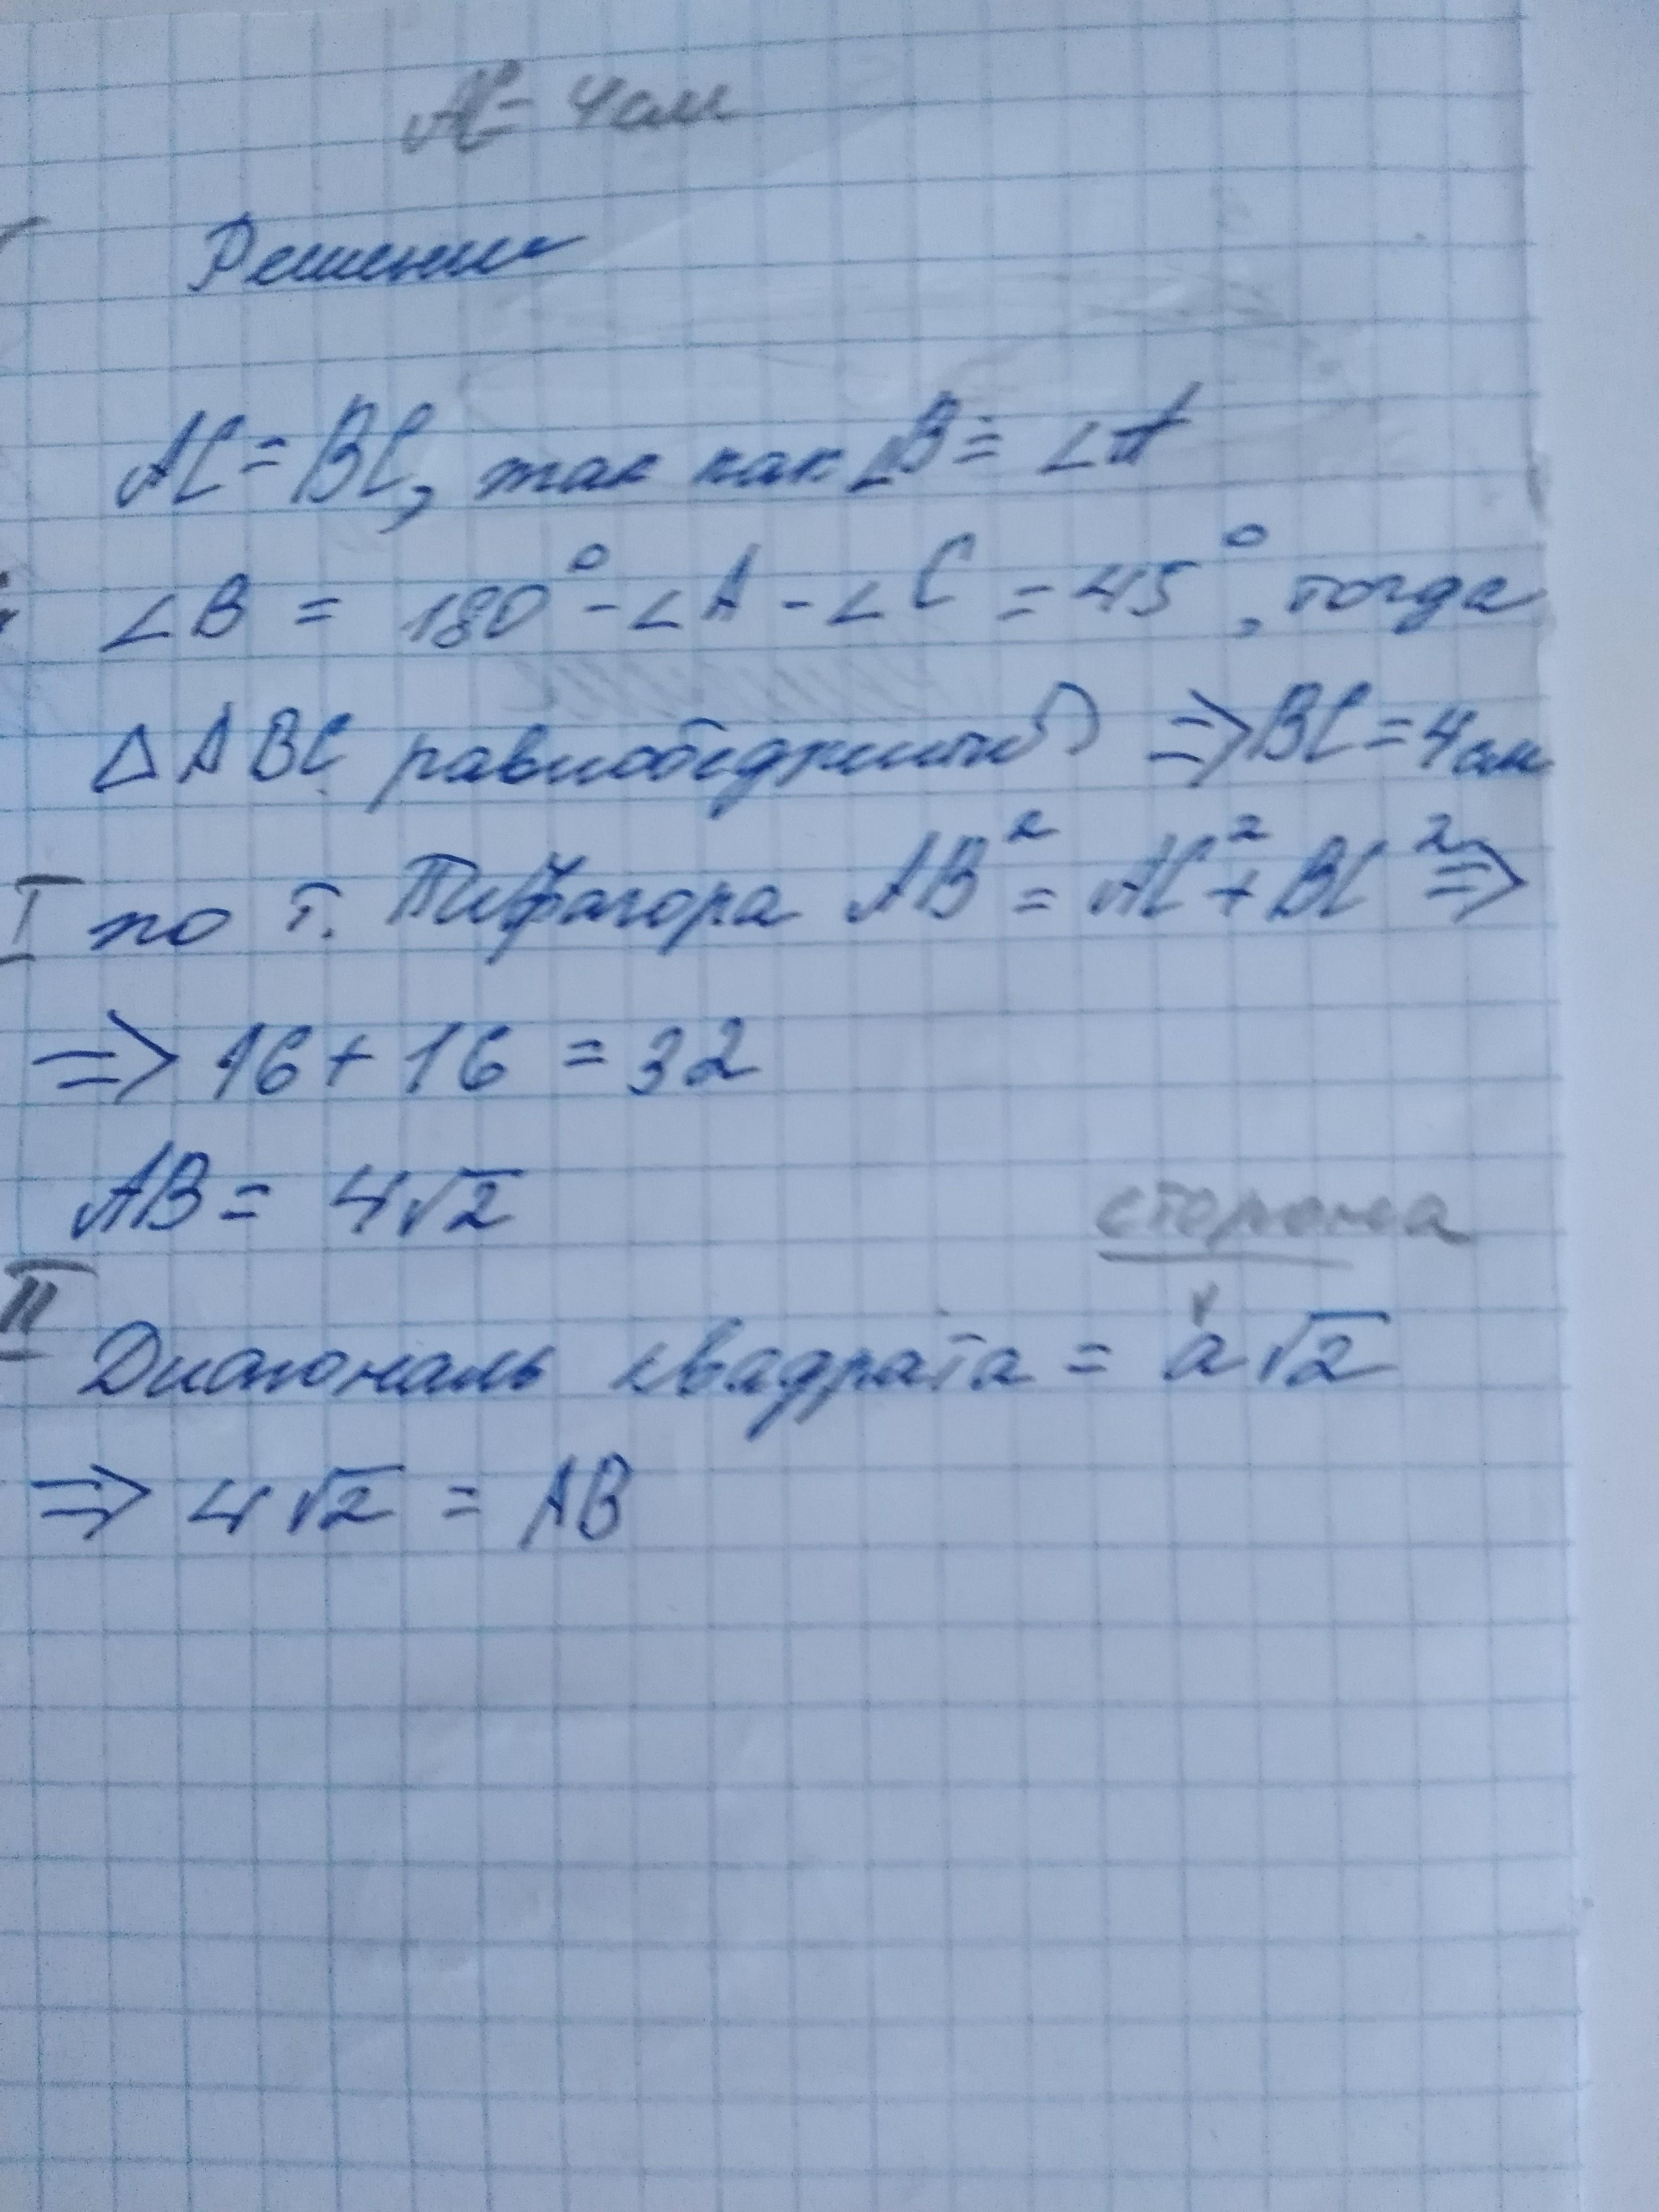 AC = 4см
Решение
AC = BC, так как ∠B = ∠A
∠B = 180° - ∠A - ∠C = 45°, тогда
△ABC равнобедренный ⇒ BC = 4см
I по т. Пифагора AB² = AC² + BC² ⇒
⇒ 16 + 16 = 32
AB = 4√2
сторона
II Диагональ квадрата = a√2
⇒ 4√2 = AB